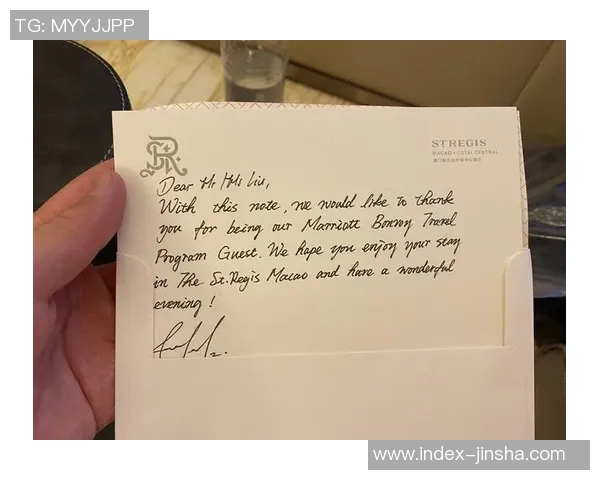 TG: MYYJJPP
ST REGIS
MACAO • COTAI CENTRAL
Dear Mr/Ms Liu,
With this note, we would like to thank
you for being our Marriott Bonvoy Travel
Program Guest. We hope you enjoy your stay
in The St.Regis Macao and have a wonderful
evening!
www.index-jinsha.com